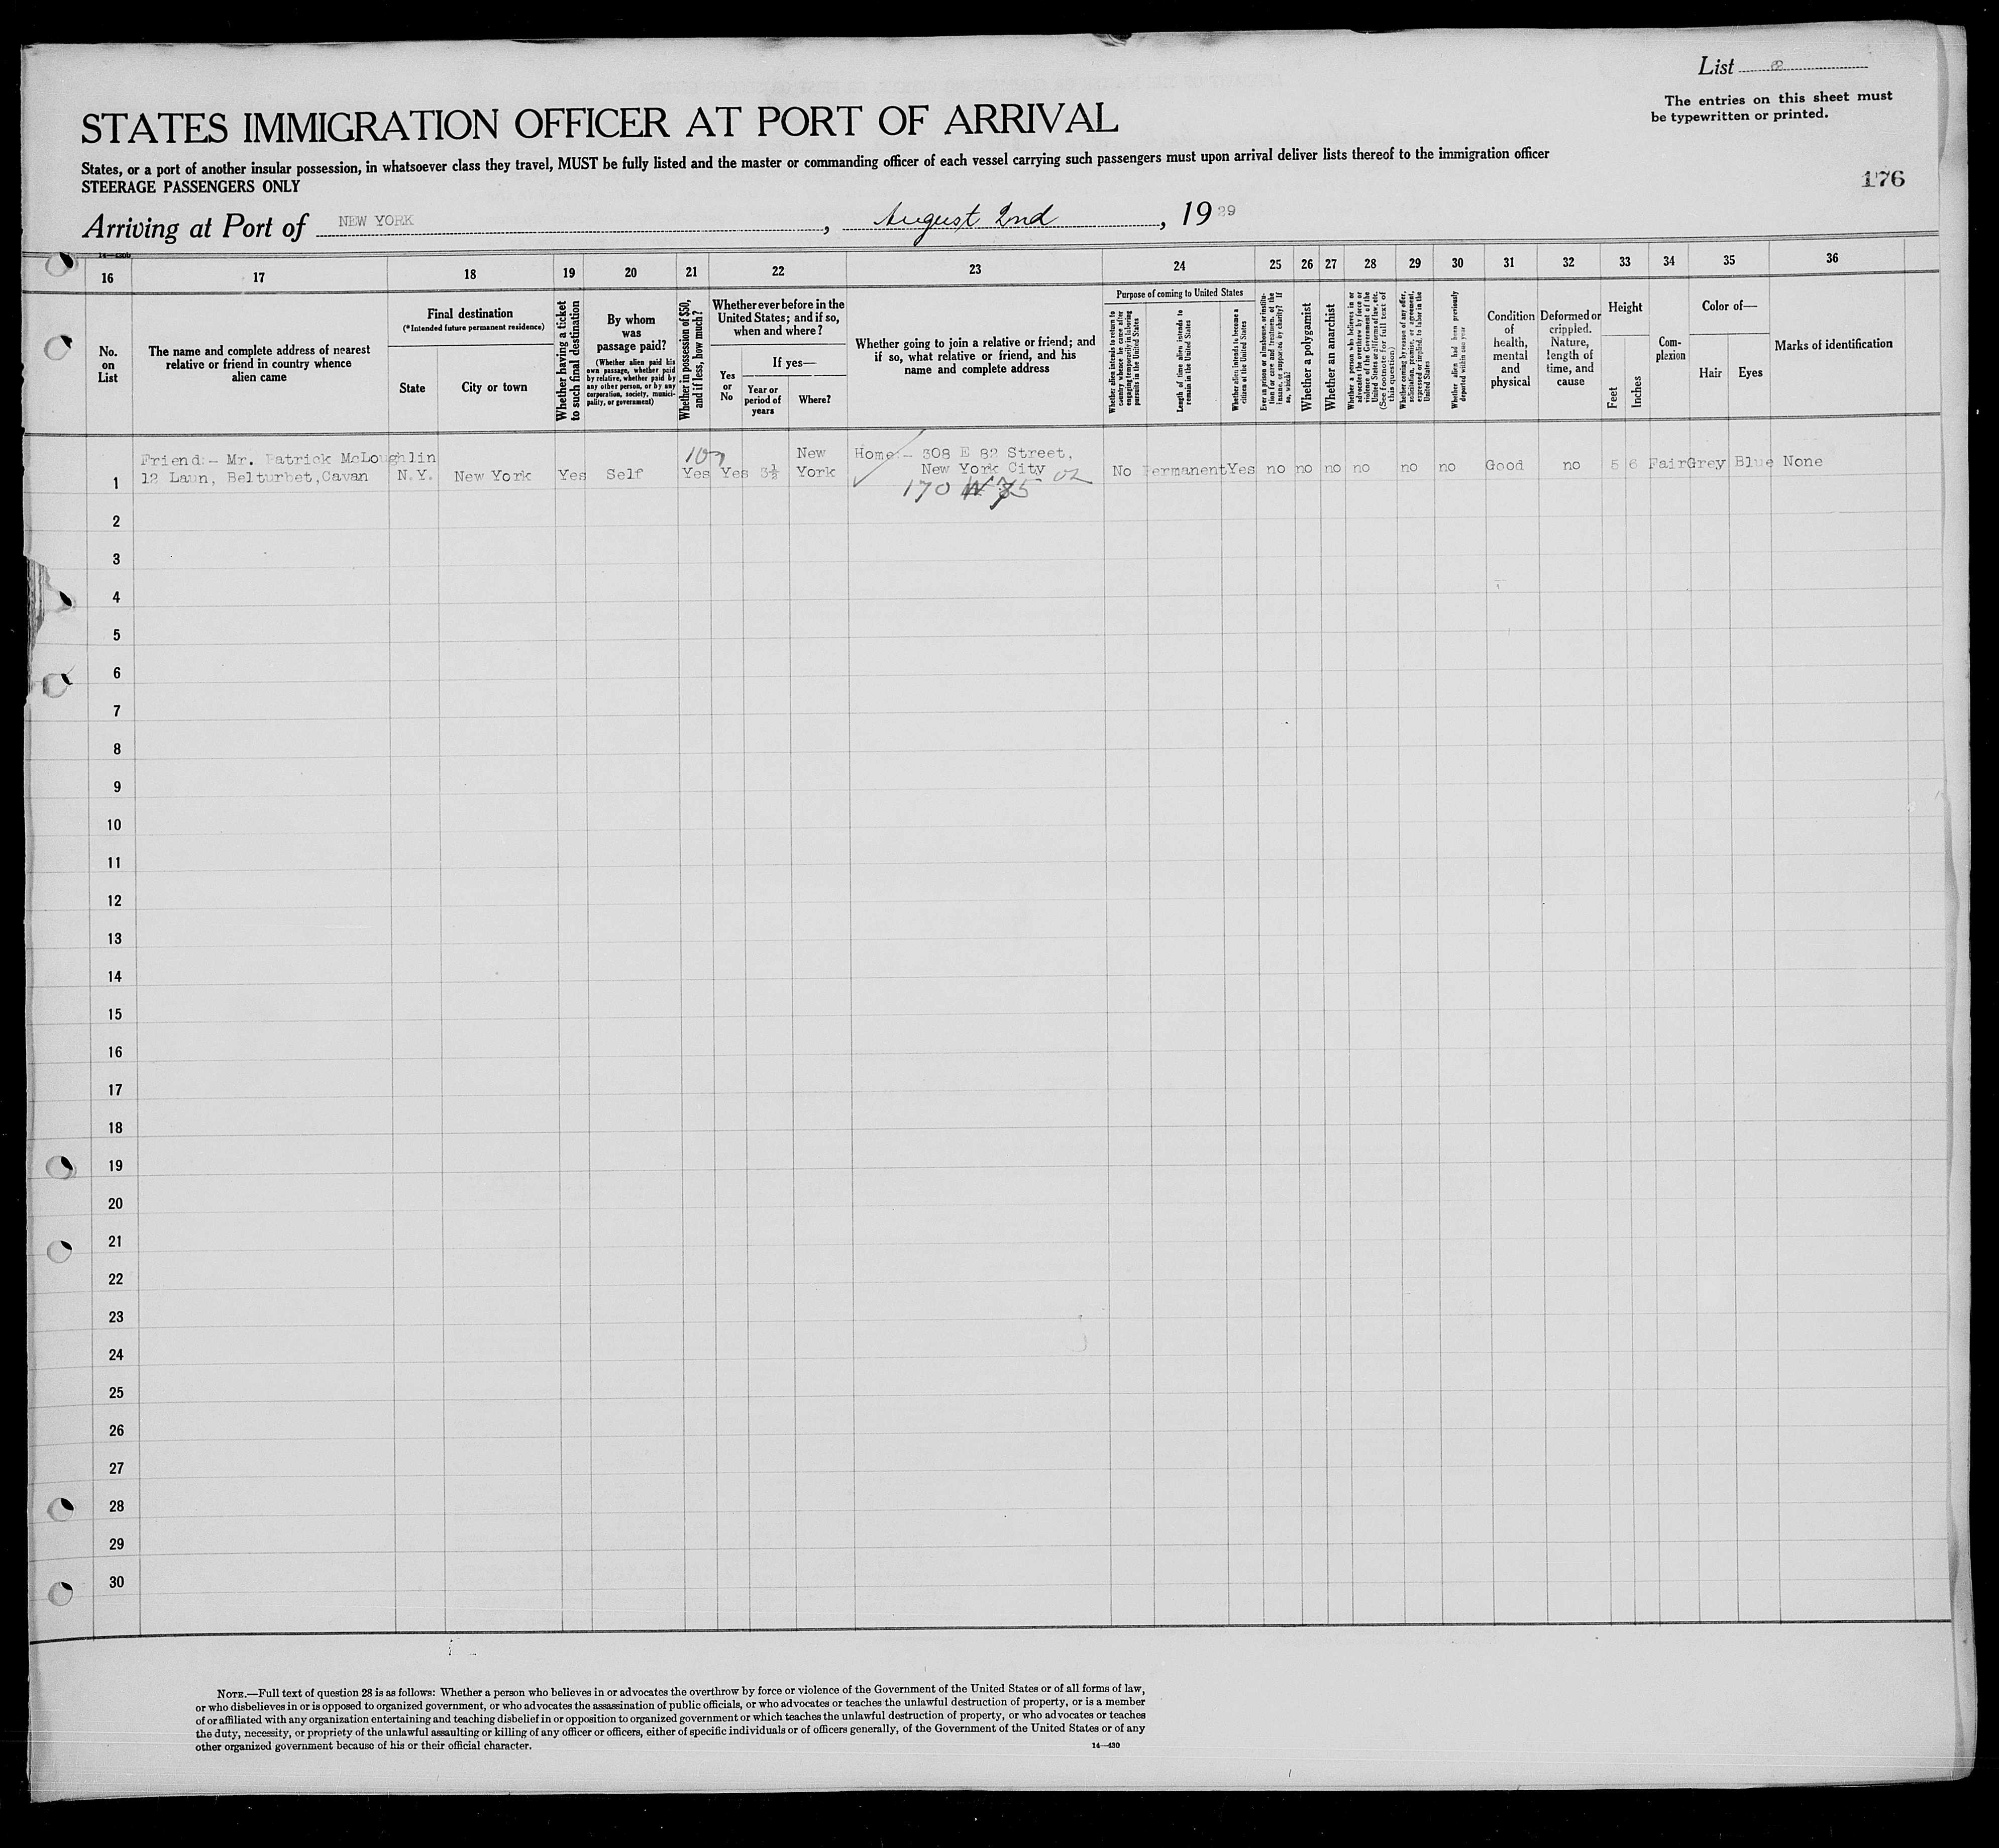 List
The entries on this sheet must
be typewritten or printed.
STATES IMMIGRATION OFFICER AT PORT OF ARRIVAL
States, or a port of another insular possession, in whatsoever class they travel, MUST be fully listed and the master or commanding officer of each vessel carrying such passengers must upon arrival deliver lists thereof to the immigration officer
STEERAGE PASSENGERS ONLY
176
Arriving at Port of NEW YORK, August 2nd, 1929
16 17 18 19 20 21 22 23 24 25 26 27 28 29 30 31 32 33 34 35 36
No.
on
List
The name and complete address of nearest
relative or friend in country whence
alien came
Final destination
(*Intended future permanent residence)
State
City or town
Whether having a ticket
to such final destination
By whom
was
passage paid?
(Whether alien paid his
own passage, whether paid
by relative, whether paid by
any other person, or by any
corporation, society, munici-
pality, or government)
Whether in possession of $50,
and if less, how much?
Whether ever before in the
United States; and if so,
when and where?
Yes
or
No
If yes—
Year or
period of
years
Where?
Whether going to join a relative or friend; and
if so, what relative or friend, and his
name and complete address
Purpose of coming to United States
Whether alien intends to return to
country whence he came after
engaging temporarily in laboring
pursuits in the United States
Length of time alien intends to
remain in the United States
Whether alien intends to become a
citizen of the United States
Ever in prison or almshouse, or institu-
tion for care and treatment of the
insane, or supported by charity? If
so, which?
Whether a polygamist
Whether an anarchist
Whether a person who believes in or
advocates the overthrow by force or
violence of the Government of the
United States or all forms of law, etc.
(See footnote for full text of
this question)
Whether coming by reason of any offer,
solicitation, promise, or agreement,
expressed or implied, to labor in the
United States
Whether alien had been previously
deported within one year
Condition
of
health,
mental
and
physical
Deformed or
crippled.
Nature,
length of
time, and
cause
Height
Feet
Inches
Com-
plexion
Color of—
Hair
Eyes
Marks of identification
Friend:- Mr. Patrick McLoughlin 10 New Home:- 308 E 82 Street,
1 12 Laun, Belturbet,Cavan N.Y. New York Yes Self Yes Yes 3½ York New York City No Permanent Yes no no no no no no Good no 5 6 Fair Grey Blue None
170 W 75
2
3
4
5
6
7
8
9
10
11
12
13
14
15
16
17
18
19
20
21
22
23
24
25
26
27
28
29
30
NOTE.—Full text of question 28 is as follows: Whether a person who believes in or advocates the overthrow by force or violence of the Government of the United States or of all forms of law,
or who disbelieves in or is opposed to organized government, or who advocates the assassination of public officials, or who advocates or teaches the unlawful destruction of property, or is a member
of or affiliated with any organization entertaining and teaching disbelief in or opposition to organized government or which teaches the unlawful destruction of property, or who advocates or teaches
the duty, necessity, or propriety of the unlawful assaulting or killing of any officer or officers, either of specific individuals or of officers generally, of the Government of the United States or of any
other organized government because of his or their official character.
14—430